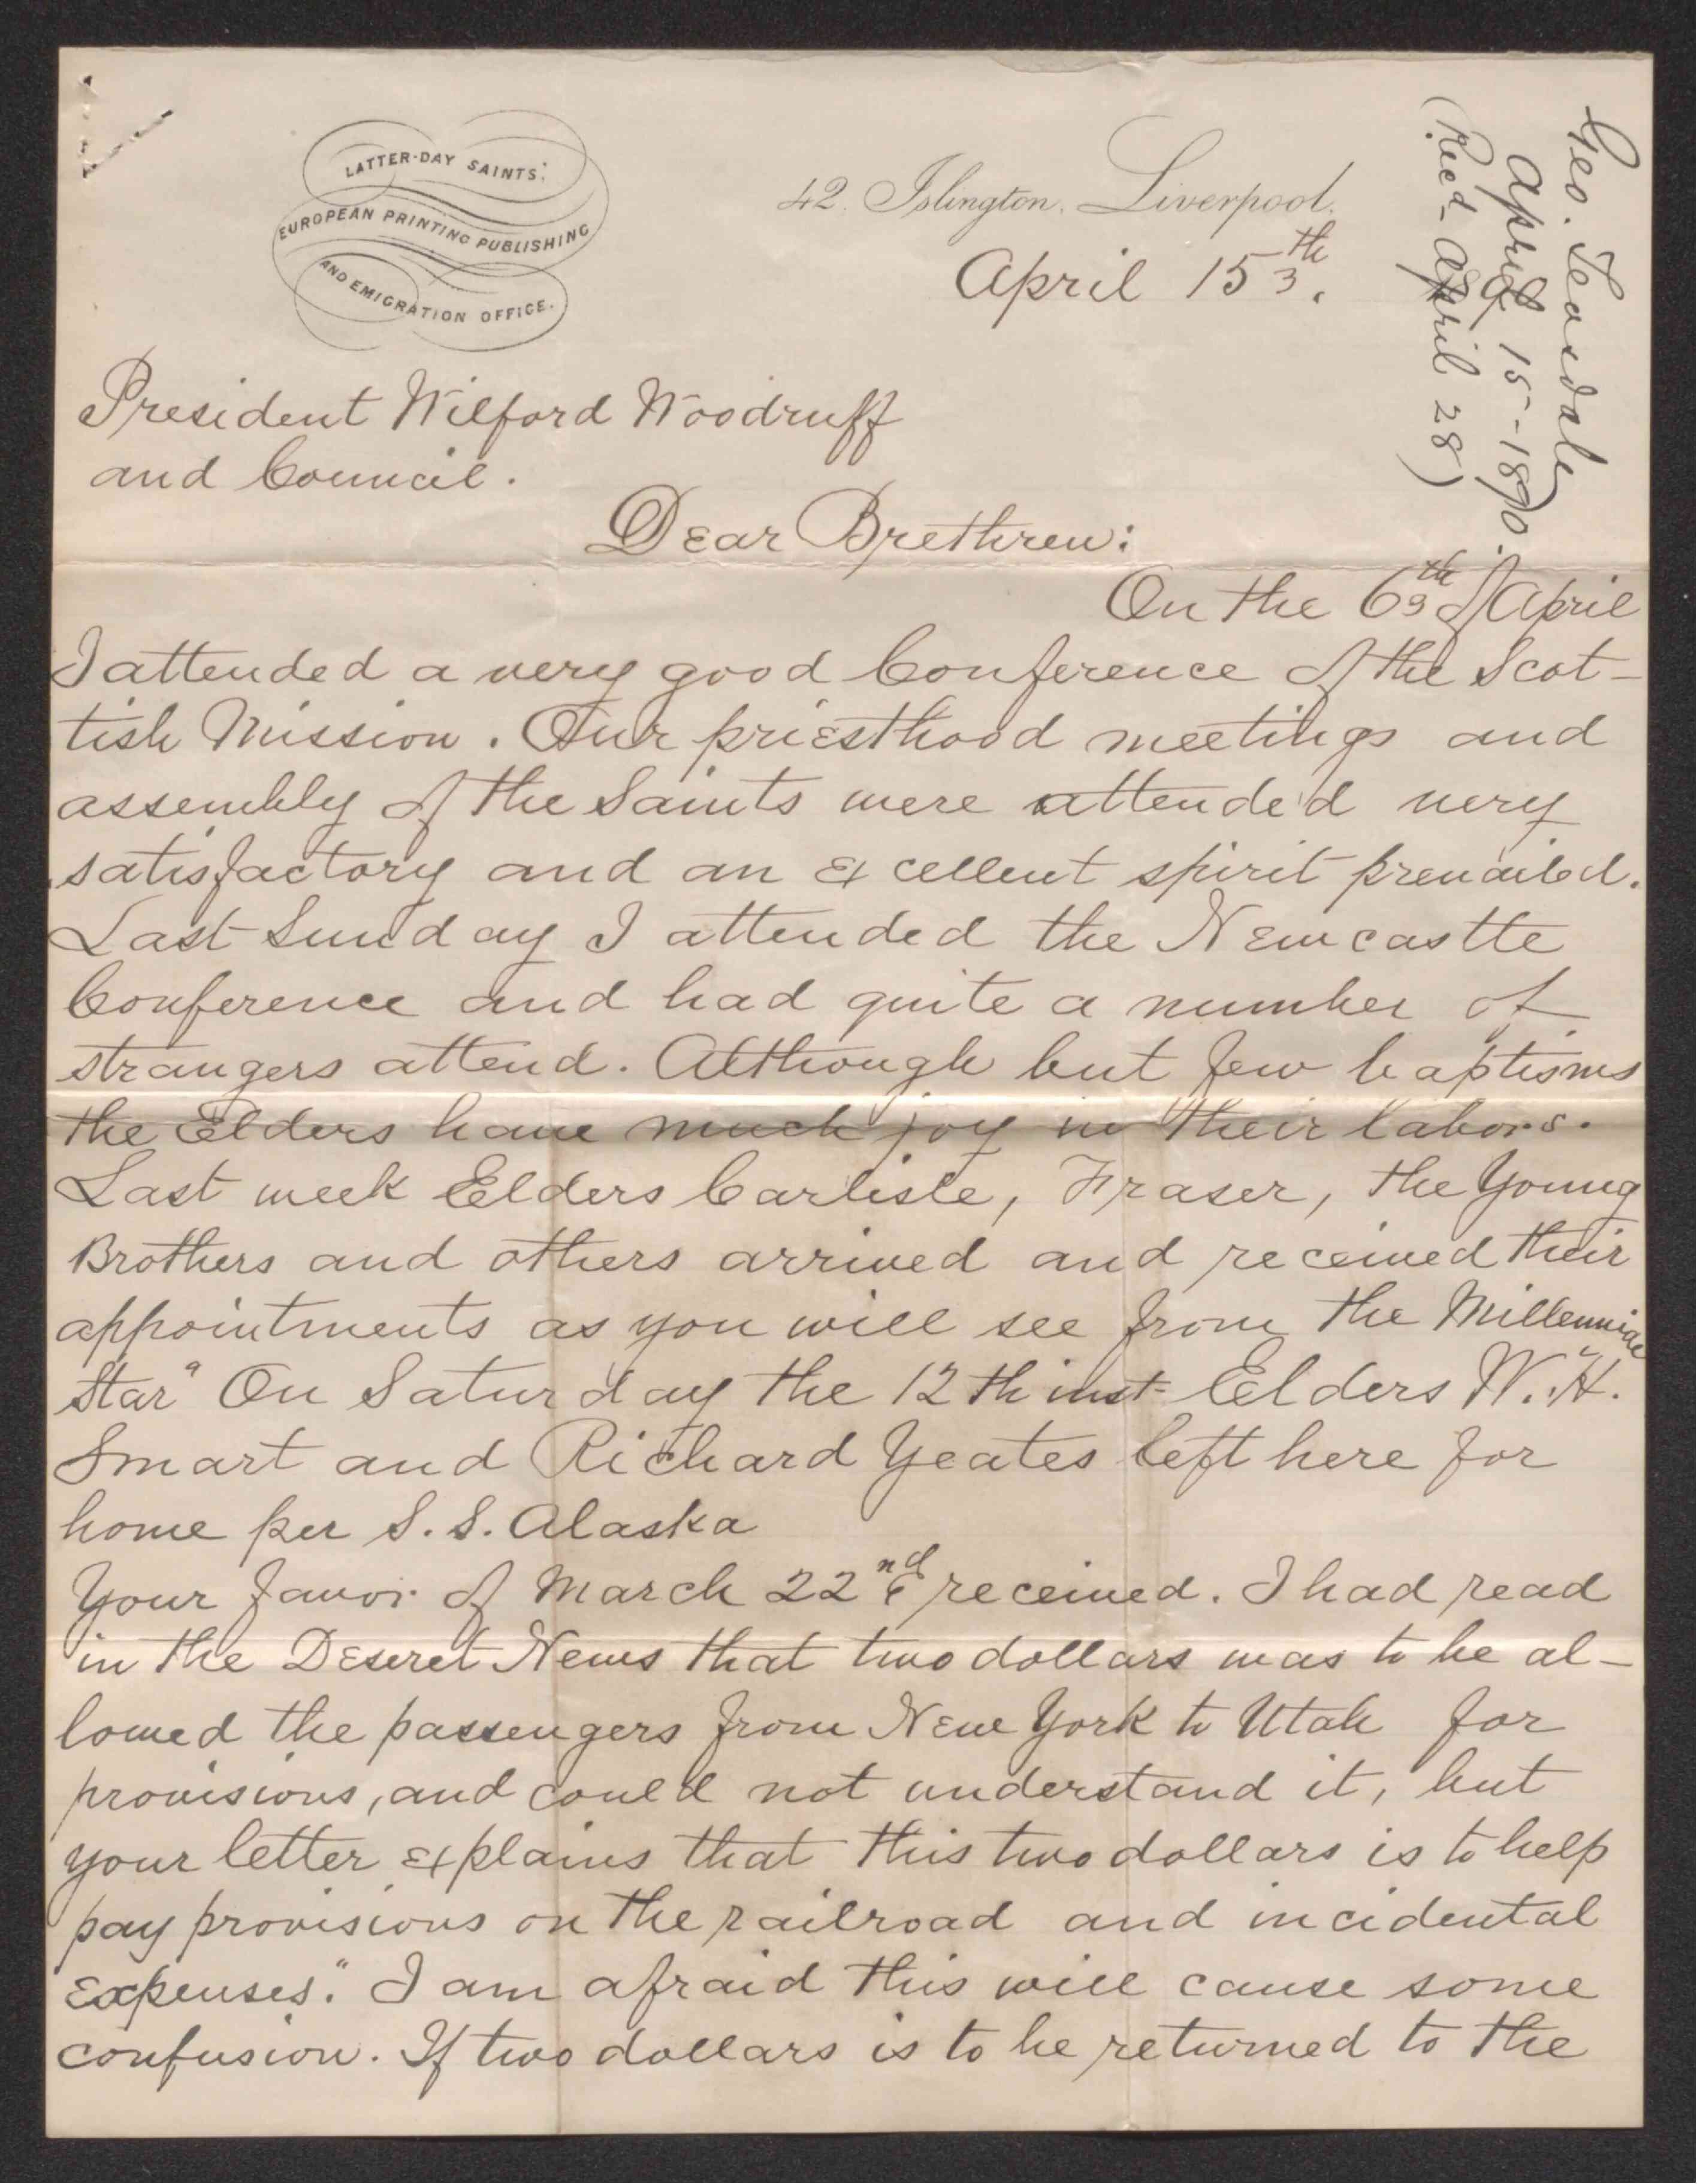 LATTER-DAY SAINTS'
EUROPEAN PRINTING PUBLISHING
AND EMIGRATION OFFICE.
42, Islington, Liverpool.
April 15th.
Geo. Teasdale
April 15-1890.
(Recd. April 28)
President Wilford Woodruff
and Council.
Dear Brethren:
On the 6th of April
I attended a very good Conference of the Scot-
tish Mission. Our priesthood meetings and
assembly of the Saints were attended very
satisfactory and an excellent spirit prevailed.
Last Sunday I attended the Newcastle
Conference and had quite a number of
strangers attend. Although but few baptisms
the Elders have much joy in their labors.
Last week Elders Carlisle, Fraser, the Young
Brothers and others arrived and received their
appointments as you will see from the Millennial
Star" On Saturday the 12th inst Elders W. H.
Smart and Richard Yeates left here for
home per S.S. Alaska
Your favor of March 22nd received. I had read
in the Deseret News that two dollars was to be al-
lowed the passengers from New York to Utah for
provisions, and could not understand it, but
your letter explains that this two dollars is to help
pay provisions on the railroad and incidental
expenses." I am afraid this will cause some
confusion. If two dollars is to be returned to the